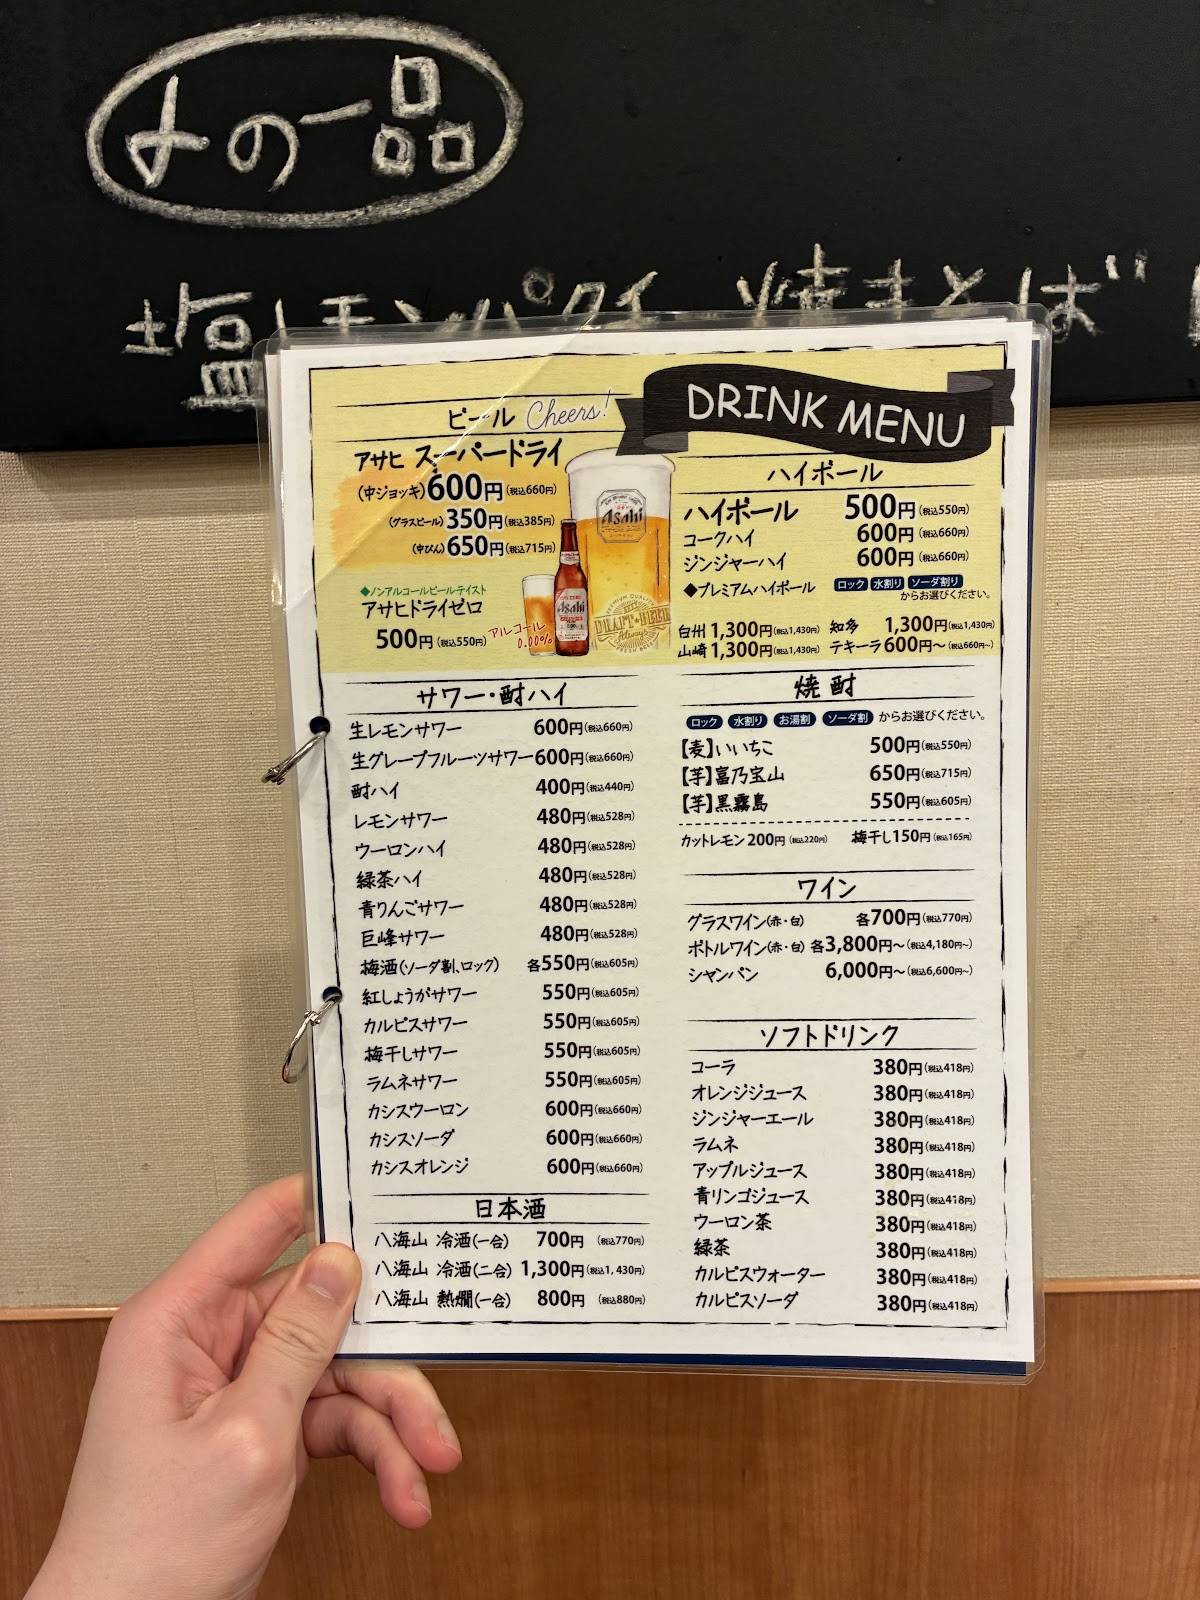 よの一品
塩レモンパクチー焼きそば
DRINK MENU
ビール Cheers!
アサヒ スーパードライ
(中ジョッキ)600円(税込660円)
(グラスビール)350円(税込385円)
(中びん)650円(税込715円)
◆ノンアルコールビールテイスト
アサヒドライゼロ
500円(税込550円)
アルコール
0.00%
Asahi
Asahi
PREMIUM QUALITY
DRAFT-BEER
Always
FRESH BEER
ハイボール
ハイボール 500円(税込550円)
コークハイ 600円(税込660円)
ジンジャーハイ 600円(税込660円)
◆プレミアムハイボール ロック 水割り ソーダ割り
からお選びください。
白州 1,300円(税込1,430円) 知多 1,300円(税込1,430円)
山崎 1,300円(税込1,430円) テキーラ 600円~(税込660円~)
サワー・酎ハイ
生レモンサワー 600円(税込660円)
生グレープフルーツサワー 600円(税込660円)
酎ハイ 400円(税込440円)
レモンサワー 480円(税込528円)
ウーロンハイ 480円(税込528円)
緑茶ハイ 480円(税込528円)
青りんごサワー 480円(税込528円)
巨峰サワー 480円(税込528円)
梅酒(ソーダ割、ロック) 各550円(税込605円)
紅しょうがサワー 550円(税込605円)
カルピスサワー 550円(税込605円)
梅干しサワー 550円(税込605円)
ラムネサワー 550円(税込605円)
カシスウーロン 600円(税込660円)
カシスソーダ 600円(税込660円)
カシスオレンジ 600円(税込660円)
日本酒
八海山 冷酒(一合) 700円 (税込770円)
八海山 冷酒(二合) 1,300円(税込1,430円)
八海山 熱燗(一合) 800円 (税込880円)
焼酎
ロック 水割り お湯割 ソーダ割 からお選びください。
【麦】いいちこ 500円(税込550円)
【芋】富乃宝山 650円(税込715円)
【芋】黒霧島 550円(税込605円)
カットレモン 200円(税込220円) 梅干し 150円(税込165円)
ワイン
グラスワイン(赤・白) 各700円(税込770円)
ボトルワイン(赤・白) 各3,800円~(税込4,180円~)
シャンパン 6,000円~(税込6,600円~)
ソフトドリンク
コーラ 380円(税込418円)
オレンジジュース 380円(税込418円)
ジンジャーエール 380円(税込418円)
ラムネ 380円(税込418円)
アップルジュース 380円(税込418円)
青リンゴジュース 380円(税込418円)
ウーロン茶 380円(税込418円)
緑茶 380円(税込418円)
カルピスウォーター 380円(税込418円)
カルピスソーダ 380円(税込418円)